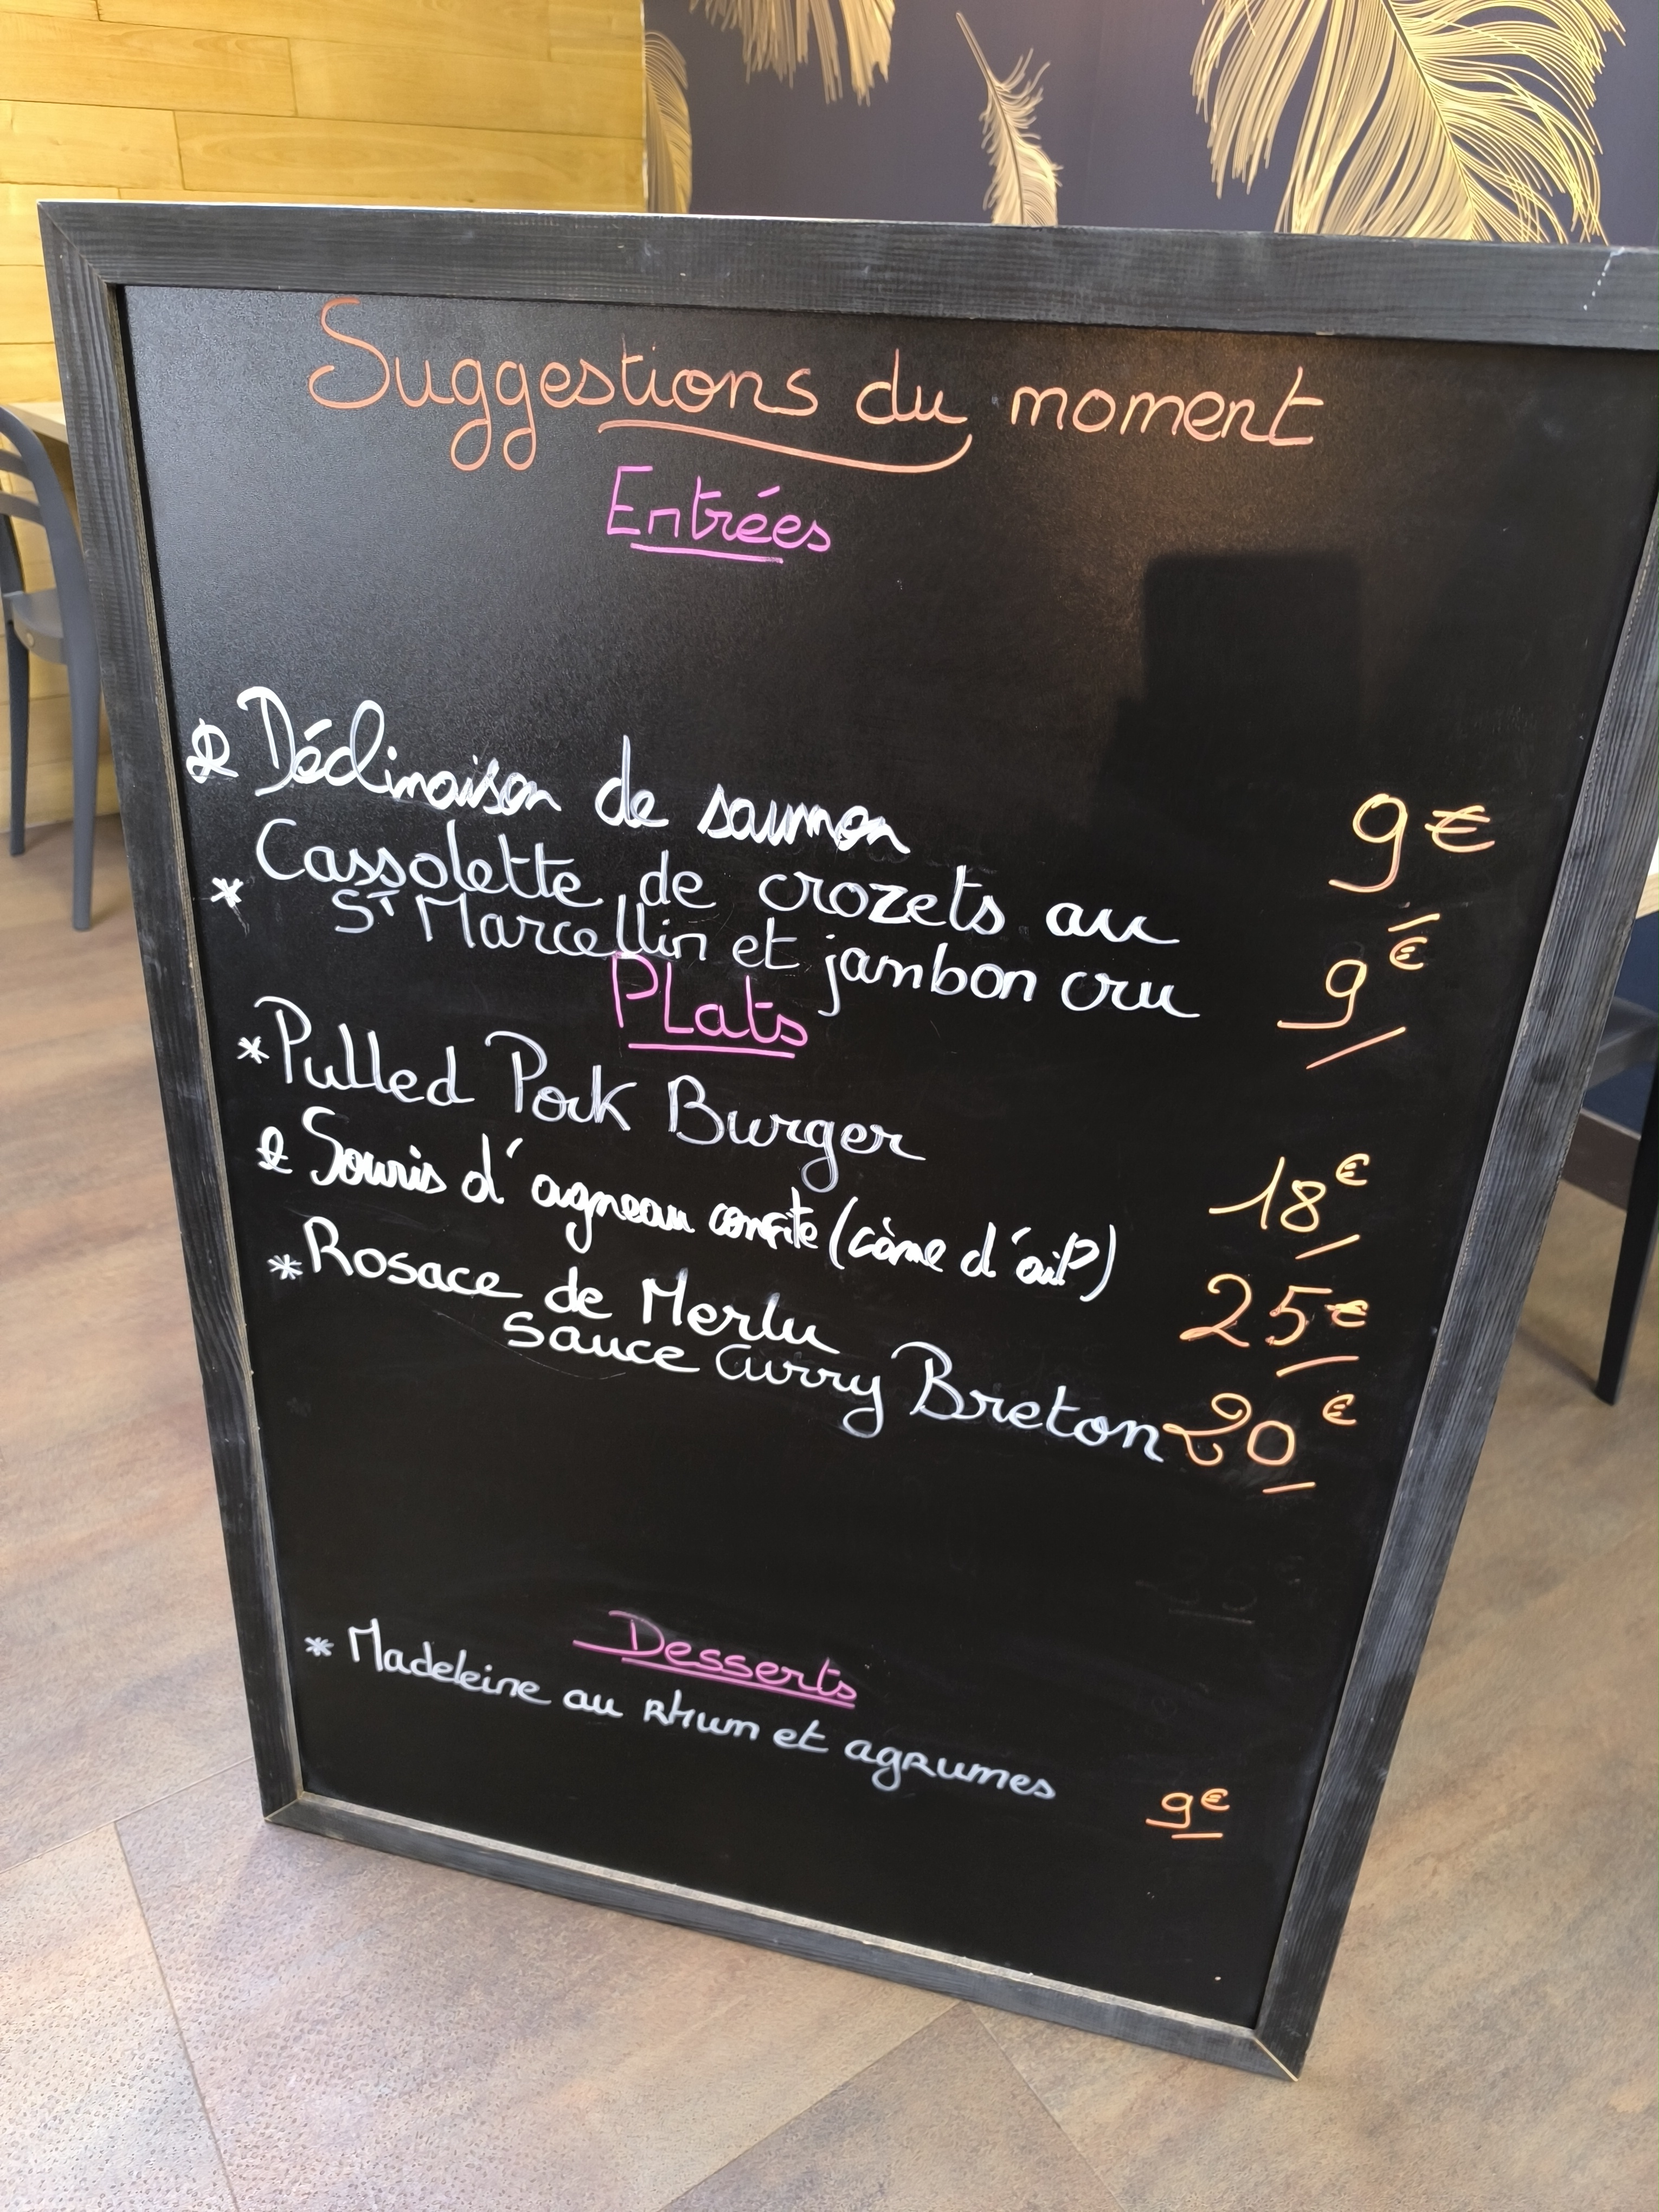 Suggestions du moment
Entrées
Déclinaison de saumon 9€
* Cassolette de crozets au
St Marcellin et jambon cru 9€
PLats
* Pulled Pork Burger 18€
Souris d'agneau confite (crème d'ail) 25€
* Rosace de Merlu
sauce Curry Breton 20€
Desserts
* Madeleine au Rhum et agrumes 9€